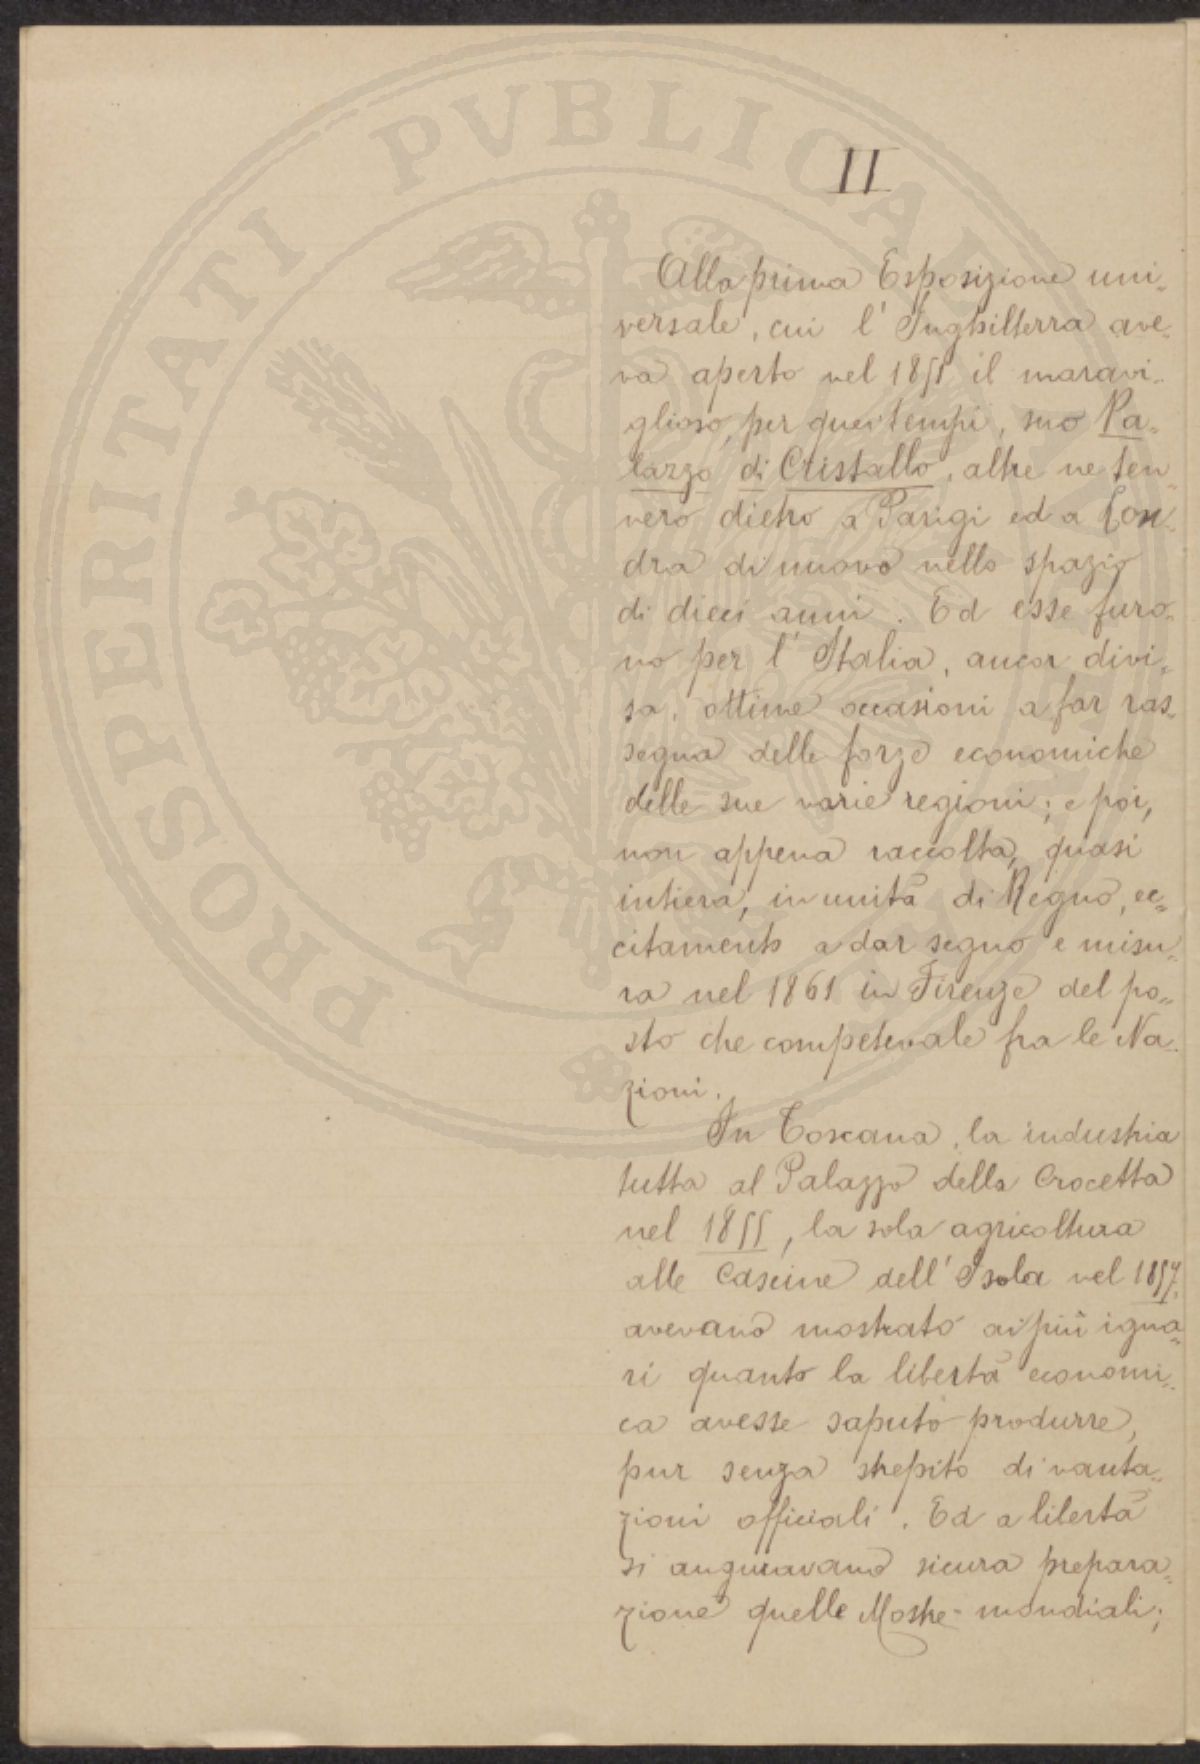 PROSPERITATI PVBLICAE
II
Alla prima Esposizione uni-
versale, cui l'Inghilterra ave-
va aperto nel 1851 il maravi-
glioso, per quei tempi, suo Pa-
lazzo di Cristallo, altre ne ten-
nero dietro a Parigi ed a Lon-
dra di nuovo nello spazio
di dieci anni. Ed esse furo-
no per l'Italia, ancor divi-
sa, ottime occasioni a far ras-
segna delle forze economiche
delle sue varie regioni; e poi,
non appena raccolta, quasi
intiera, in unità di Regno, ec-
citamento a dar segno e misu-
ra nel 1861 in Firenze del po-
sto che competevale fra le Na-
zioni.
In Toscana, la industria
tutta al Palazzo della Crocetta
nel 1855, la sola agricoltura
alle Cascine dell'Isola nel 1857,
avevano mostrato ai più igna-
ri quanto la libertà economi-
ca avesse saputo produrre,
pur senza strepito di vanta-
zioni officiali. Ed a libertà
si auguravano sicura prepara-
zione quelle Mostre mondiali;